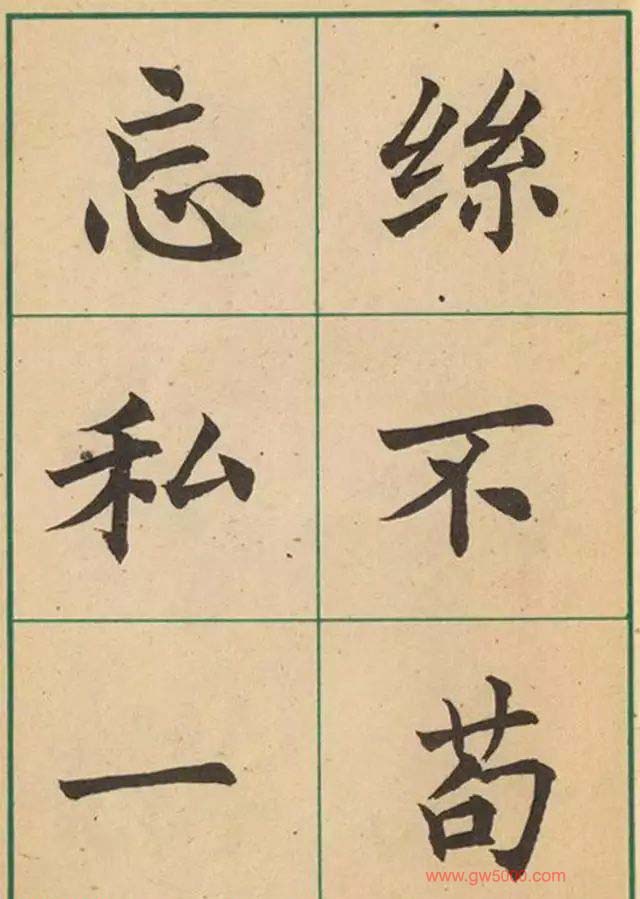 忘私一
絲不苟
www.gw5000.com